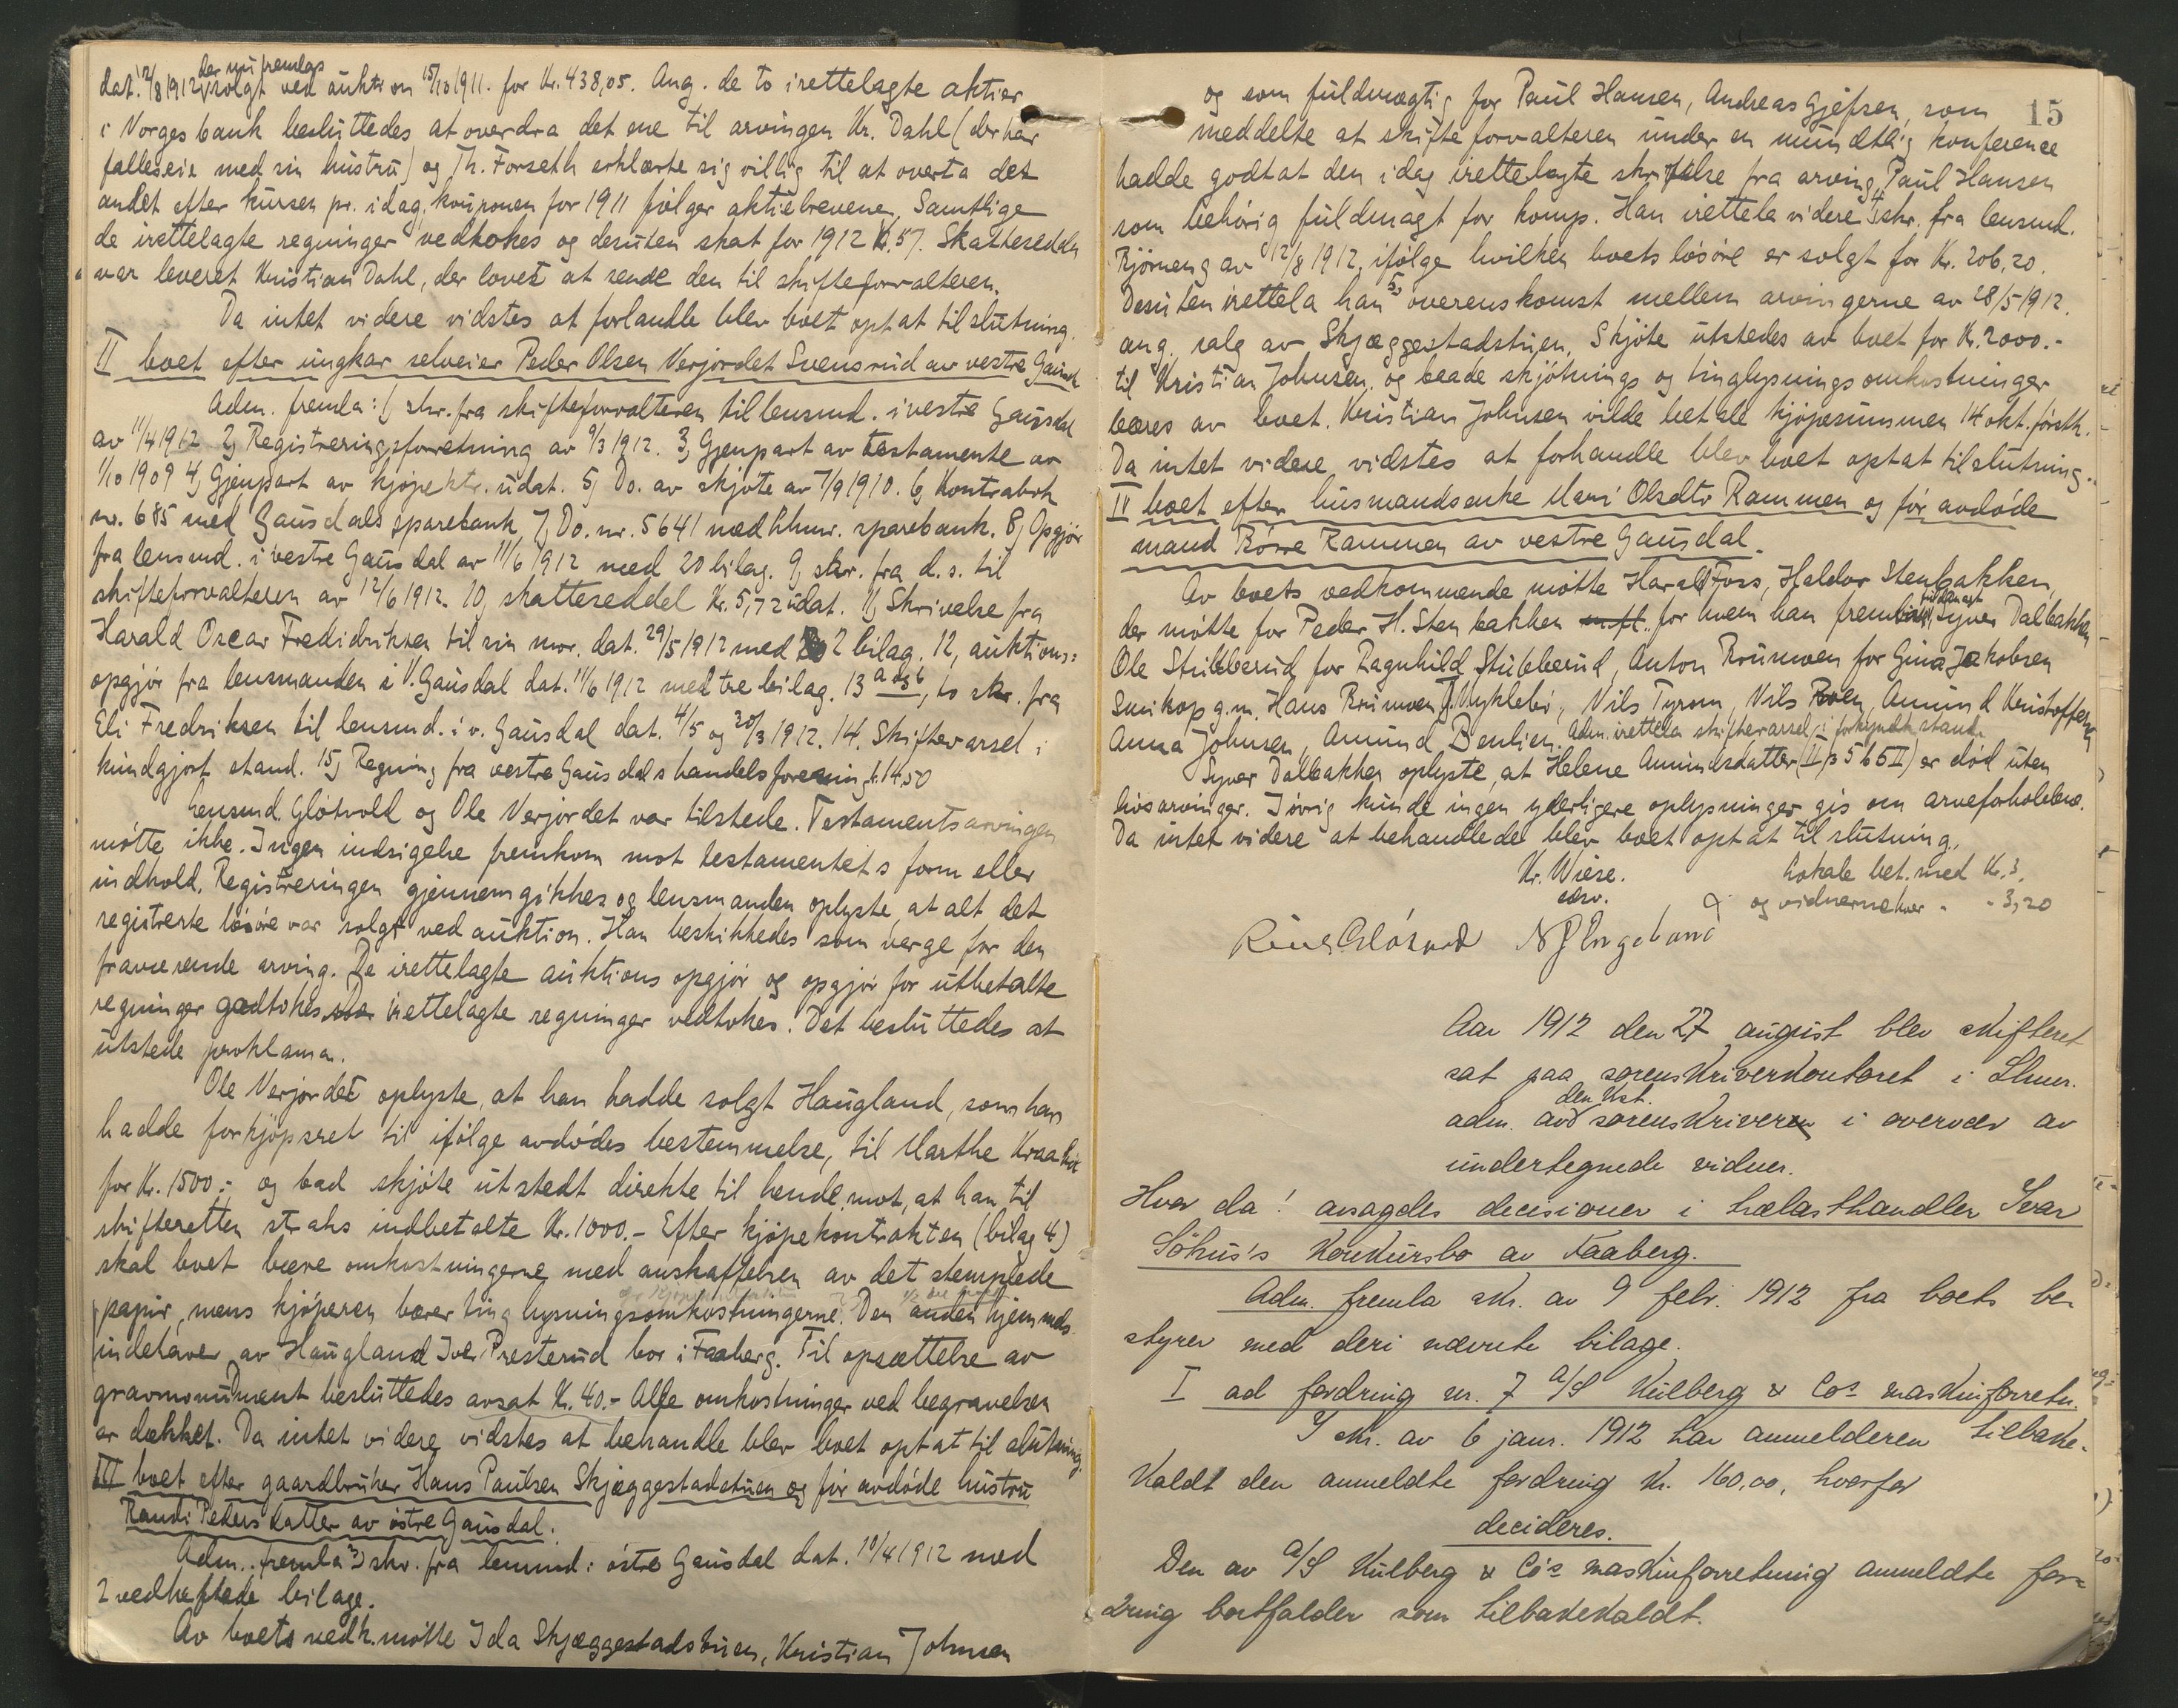 der nu fremlas
dat. 12/8 1912, solgt ved auktion 15/10 1911. for Kr. 438,05. Ang. de to irettelagte aktier
i Norges bank besluttedes at overdra det ene til arvingen Kr. Dahl (der har
fælleseie med sin hustru) og Th. Forseth erklærte sig villig til at overta det
andet efter kursen pr. idag, kouponen for 1911 følger aktiebrevene. Samtlige
de irettelagte regninger vedtokes og desuten skat for 1912 Kr. 57. Skatteseddel
var leveret Kristian Dahl, der lovet at sende den til skifteforvalteren.
Da intet videre vidstes at forhandle blev boet optat til slutning.
II boet efter ungkar selveier Peder Olsen Verjordet Svensrud av vestre Gausdal
Adm. fremla: 1, skr. fra skifteforvalteren til lensmd. i vestre Gausdal
av 11/4 1912 2, Registreringsforretning av 9/3 1912. 3, Gjenpart av testamente av
1/10 1909 4, Gjenpart av kjøpektr. udat. 5, Do. av skjøte av 7/9 1910. 6, Kontrabok
nr. 685 med Gausdals sparebank 7, Do. nr. 5641 med Lhmr. sparebank. 8, Opgjør
fra lensmd. i vestre Gausdal av 11/6 1912 med 20 bilag. 9, skr. fra d. s. til
skifteforvalteren av 12/6 1912. 10, skatteseddel Kr. 5,72 udat. 11, Skrivelse fra
Harald Oscar Fredriksen til sin mor, dat. 29/5 1912 med 2 bilag. 12, auktions=
opgjør fra lensmanden i V. Gausdal dat. 11/6 1912 med tre bilag. 13 a og b, to skr. fra
Eli Fredriksen til lensmd. i v. Gausdal dat. 4/5 og 20/3 1912. 14. Skiftevarsel i
kundgjort stand. 15, Regning fra vestre Gausdals handelsforening kr. 14,50
Lensmd. Gløtvold og Ole Verjordet var tilstede. Testamentsarvingen
møtte ikke. Ingen indsigelse fremkom mot testamentets form eller
indhold. Registreringen gjennemgikkes og lensmanden oplyste, at alt det
registrerte løsøre var solgt ved auktion. Han beskikkedes som verge for den
fraværende arving. De irettelagte auktions opgjør og opgjør for utbetalte
regninger godtokes irettelagte regninger vedtokes. Det besluttedes at
utstede proklama.
Ole Verjordet oplyste, at han hadde solgt Haugland, som han
hadde forkjøpsret til ifølge avdødes bestemmelse, til Marthe
for Kr. 1500.- og bad skjøte utstedt direkte til hende, mot, at han til
skifteretten straks indbetalte Kr. 1000.- Efter kjøpekontrakten (bilag 4)
skal boet bære omkostningerne med anskaffelsen av det stemplede
papir, mens kjøperen bærer tinglysningsomkostningerne. Den anden hjemmels
indehaver av Haugland Iver Presterud bor i Faaberg. Til opsættelse av
gravmonument besluttedes avsat Kr. 40.- Alle omkostninger ved begravelsen
er dækket. Da intet videre vidstes at behandle blev boet optat til slutning.
III boet efter gaardbruker Hans Paulsen Skjæggestadstuen og før avdøde hustru
Randi Pedersdatter av østre Gausdal.
Adm. fremla skr. fra lensmd. i østre Gausdal dat. 10/4 1912 med
2 vedheftede bilage.
Av boets vedk. møtte Ida Skjæggestadstuen, Kristian Johnsen
15
og som fuldmægtig for Paul Hansen, Andreas Gjefsen, som
meddelte at skifteforvalteren under en mundtlig konference
hadde godtat den idag irettelagte skrivelse fra arving Paul Hansen
som behørig fuldmagt for komp. Han irettela videre skr. fra lensmd.
Bjørneng av 12/8 1912, ifølge hvilken boets løsøre er solgt for Kr. 206,20.
Desuten irettela han 5, overenskomst mellem arvingerne av 28/5 1912.
ang. salg av Skjæggestadstuen, Skjøte utstedes av boet for Kr. 2000.-
til Kristian Johnsen, og baade skjøtnings og tinglysningsomkostninger
bæres av boet. Kristian Johnsen vilde betale kjøpesummen 14 okt. førstk.
Da intet videre vidstes at forhandle blev boet optat til slutning.
IV boet efter husmandsenke Mari Olsdtr. Rammen og før avdøde
mand Børre Rammen av vestre Gausdal.
Av boets vedkommende møtte Harald Foss, Haldor Stenbakken,
der møtte for Peder H. Stenbakken for hvem han fremla fuldmagt, Syver Dalbakken
Ole Stubberud for Ragnhild Stubberud, Anton Brunwoen for Gina Jakobsen
g.m. Hans Bruiwoen, Nils Tyrom, Nils Roen, Amund Kristoffersen
Anna Johnsen, Amund Benlien. Adm. irettela skiftevarsel i forkyndt stand.
Syver Dalbakken oplyste, at Helene Amundsdatter (II) er død uten
livsarvinger. Iøvrig kunde ingen yderligere oplysninger gis om arveforholdene.
Da intet videre at behandlede blev boet optat til slutning.
Kr. Wiese. Lokale bet. med Kr. 3,
edsv. og vidnerne hver " - 3,20
N J Engeland
Aar 1912 den 27 august blev skifteret
sat paa sorenskriverkontoret i Lhmr.
den kst.
adm. av sorenskriveren i overvær av
undertegnede vidner.
Hvor da! avsagdes decisioner i trælasthandler Ivar
Søhus's konkursbo av Faaberg.
Adm. fremla skr. av 9 febr. 1912 fra boets be
styrer med deri nævnte bilage.
I ad fordring nr. 7 A/S Kulberg & Co's maskinforretn.
I skr. av 6 janr. 1912 har anmelderen tilbake-
kaldt den anmeldte fordring Kr. 160,00, hvorfor
decideres.
Den av A/S Kulberg & Co's maskinforretning anmeldte for=
dring bortfalder som tilbakekaldt.